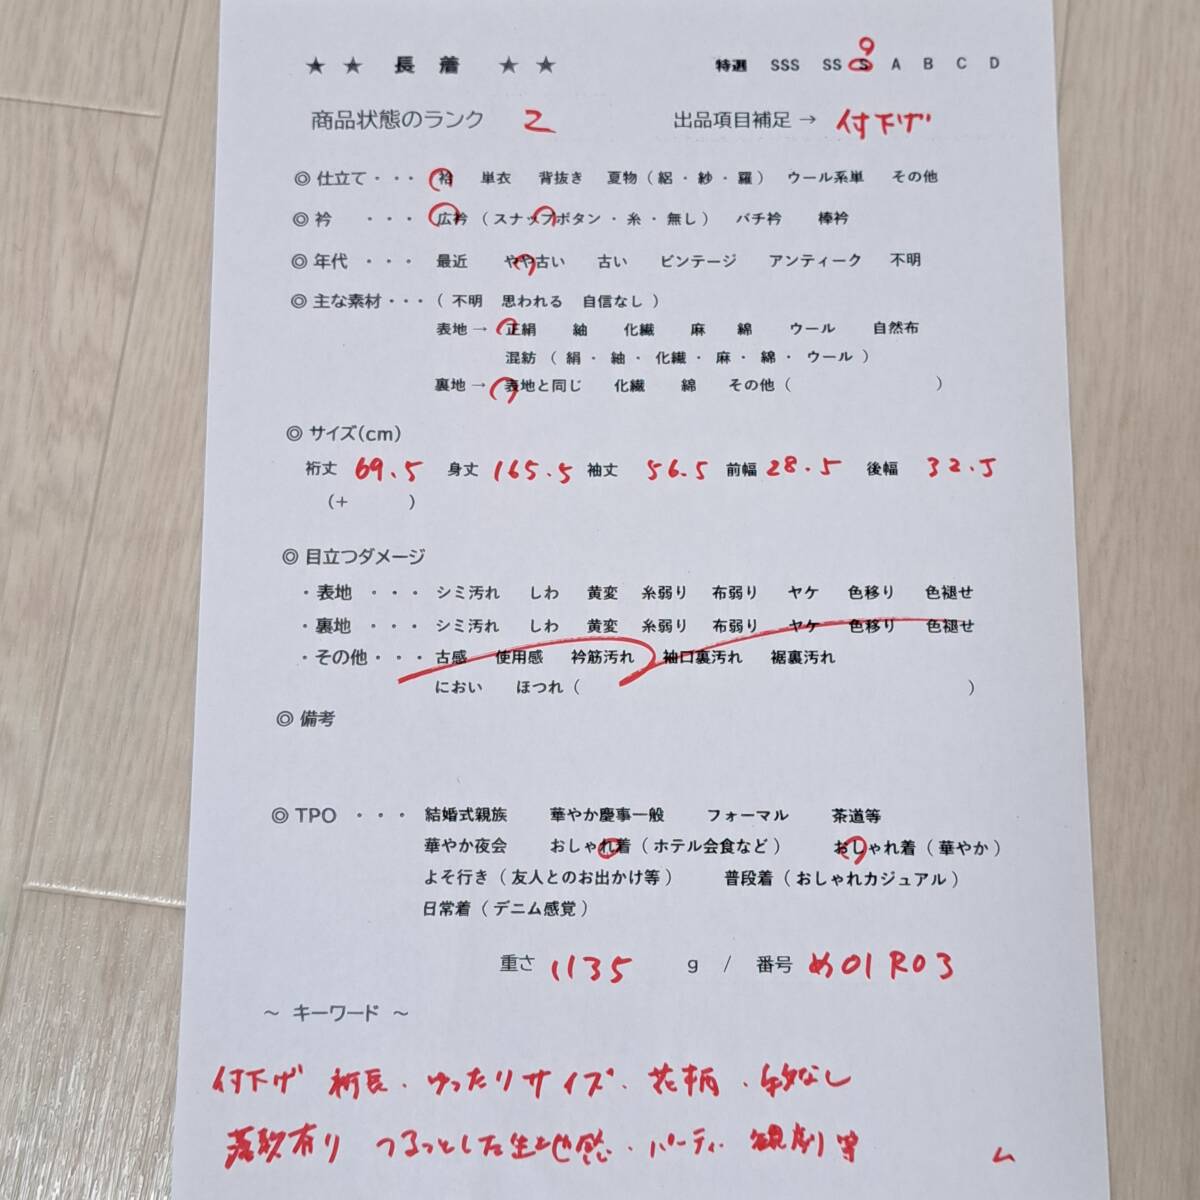 ★ ★ 長 着 ★ ★ 特選 SSS SS S A B C D
商品状態のランク 2 出品項目補足 → 付下げ
◎ 仕立て・・・ 袷 単衣 背抜き 夏物（ 絽 ・ 紗 ・ 羅 ） ウール系単 その他
◎ 衿 ・・・ 広衿 （ スナップボタン ・ 糸 ・ 無し ） バチ衿 棒衿
◎ 年代 ・・・ 最近 やや古い 古い ビンテージ アンティーク 不明
◎ 主な素材・・・（ 不明 思われる 自信なし ）
表地 → 正絹 紬 化繊 麻 綿 ウール 自然布
混紡 （ 絹 ・ 紬 ・ 化繊 ・ 麻 ・ 綿 ・ ウール ）
裏地 → 表地と同じ 化繊 綿 その他（ ）
◎ サイズ(cm)
裄丈 69.5 身丈 165.5 袖丈 56.5 前幅 28.5 後幅 32.5
（＋ ）
◎ 目立つダメージ
・表地 ・・・ シミ汚れ しわ 黄変 糸弱り 布弱り ヤケ 色移り 色褪せ
・裏地 ・・・ シミ汚れ しわ 黄変 糸弱り 布弱り ヤケ 色移り 色褪せ
・その他・・・ 古感 使用感 衿筋汚れ 袖口裏汚れ 裾裏汚れ
におい ほつれ（ ）
◎ 備考
◎ TPO ・・・ 結婚式親族 華やか慶事一般 フォーマル 茶道等
華やか夜会 おしゃれ着（ ホテル会食など ） おしゃれ着（ 華やか ）
よそ行き（ 友人とのお出かけ等 ） 普段着（ おしゃれカジュアル ）
日常着（ デニム感覚 ）
重さ 1135 g / 番号 め01R03
～ キーワード ～
付下げ 裄長・ゆったりサイズ・花柄・紋なし
落款有り つるっとした生地感・パーティ 観劇等 ム